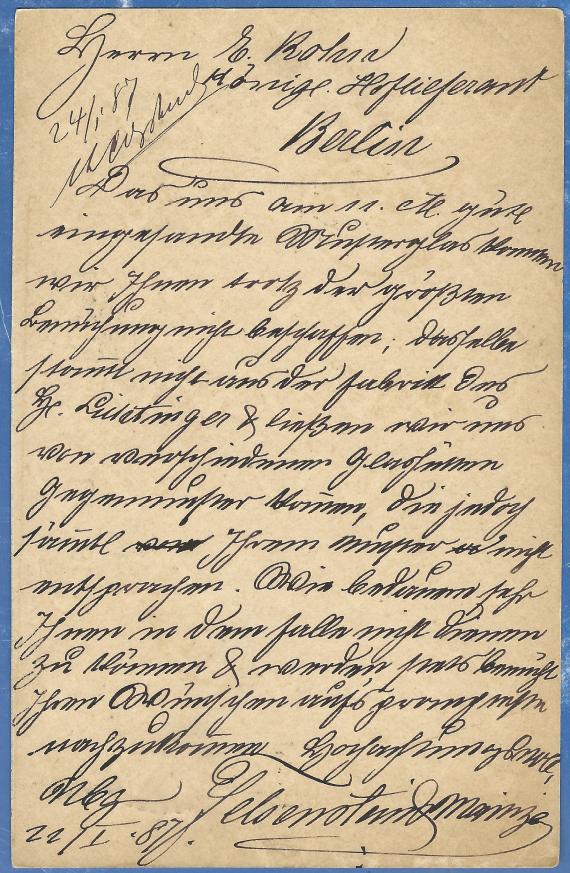 Herrn E. Kohn
Königl. Hoflieferant
24/1. 87
Berlin
Das uns am 11. d. M. güte
eingesandte Musterglas konnten
wir Ihnen trotz der größten
Bemühung nicht beschaffen; dasselbe
stammt nicht aus der Fabrik des
H. & ließen wir uns
von verschiedenen Glashütten
Gegenmuster kommen, die jedoch
sämtl Ihrem Muster nicht
entsprachen. Wir bedauern sehr
Ihnen in dem Falle nicht dienen
zu können & werden stets bemüht
Ihren Wünschen aufs prompteste
nachzukommen Hochachtungsvoll
Nbg
22/I. 87.